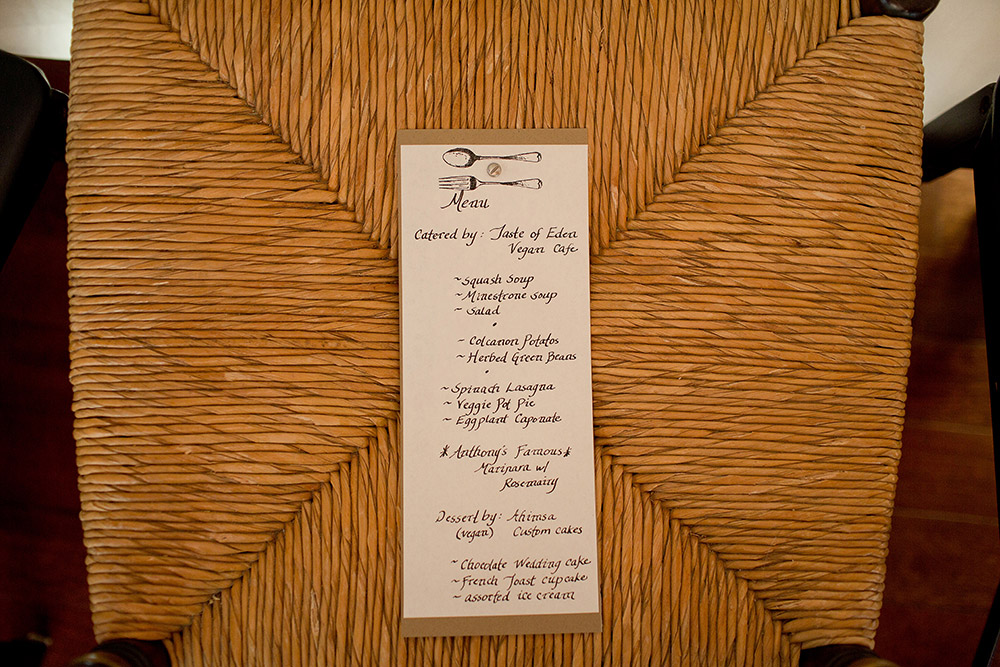 Menu
Catered by: Taste of Eden
Vegan Cafe
~ Squash Soup
~ Minestrone Soup
~ Salad
- Colcanon Potatos
~ Herbed Green Beans
~ Spinach Lasagna
~ Veggie Pot Pie
~ Eggplant Caponate
*Anthony's Famous*
Marinara w/
Rosemairy
Dessert by: Ahimsa
(vegan) Custom cakes
~ Chocolate Wedding cake
~ French Toast cupcake
~ assorted ice cream